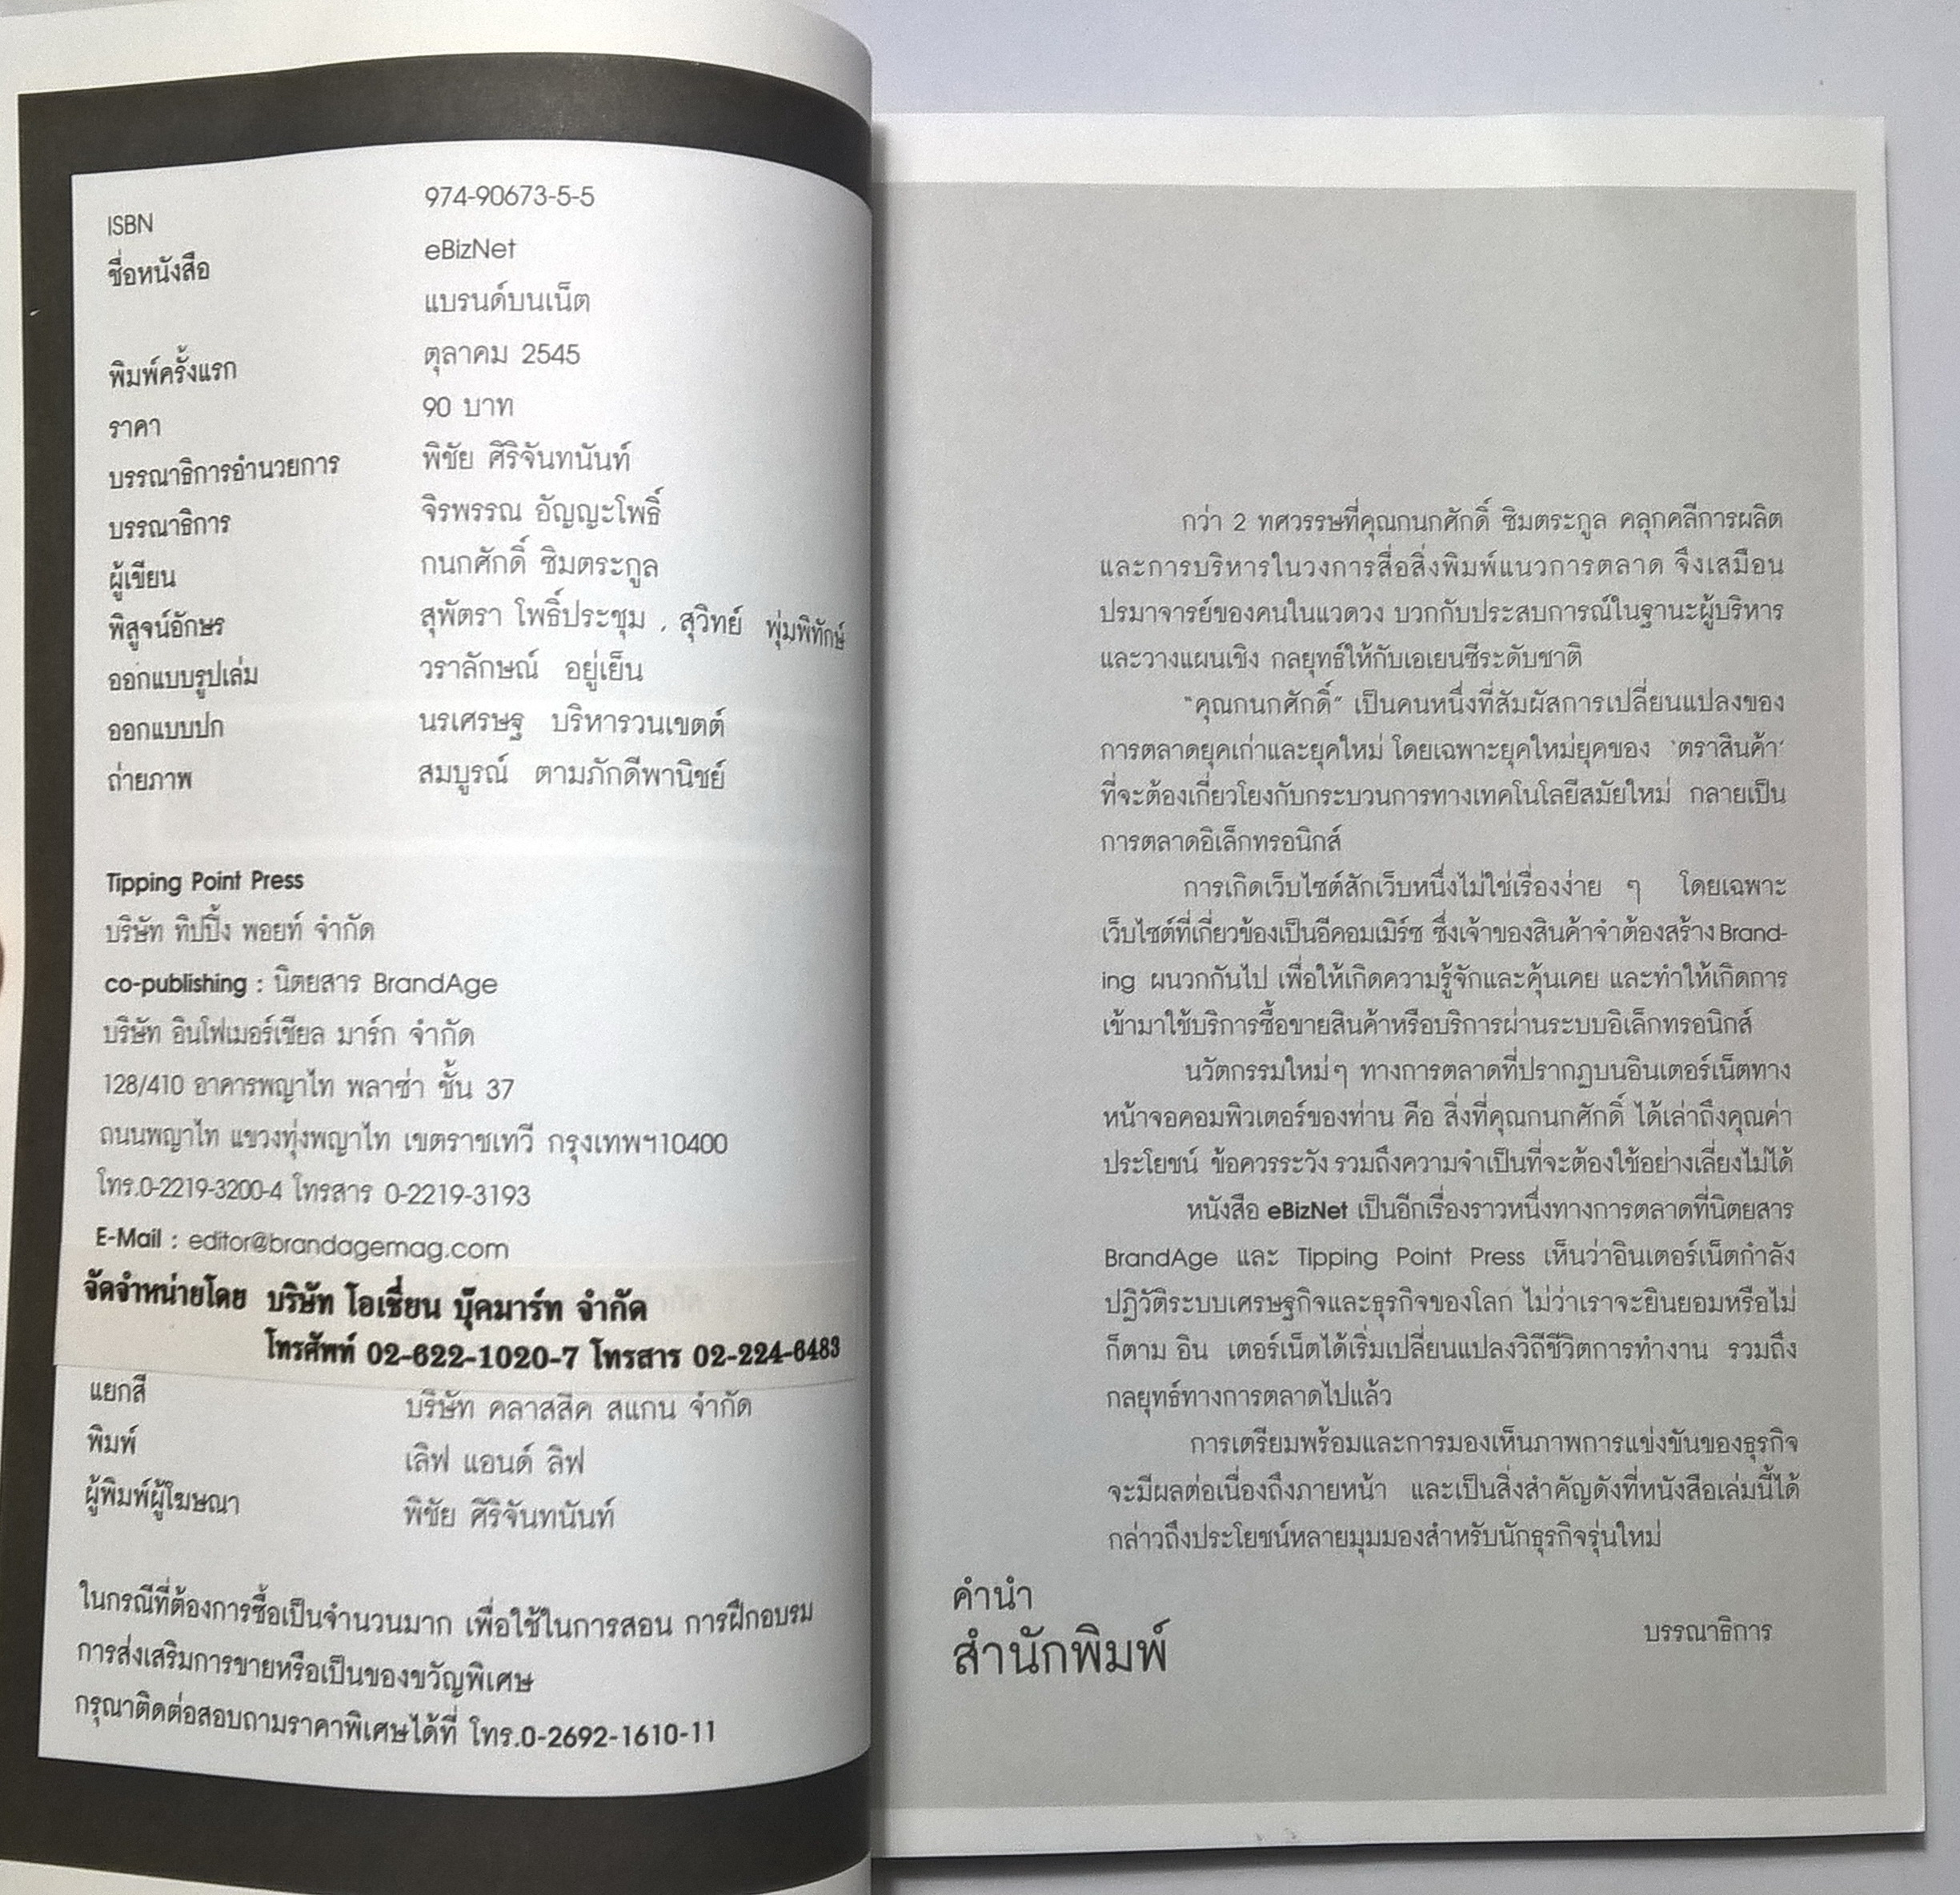 ISBN 974-90673-5-5
ชื่อหนังสือ eBizNet
แบรนด์บนเน็ต
พิมพ์ครั้งแรก ตุลาคม 2545
ราคา 90 บาท
บรรณาธิการอำนวยการ พิชัย ศิริจันทนันท์
บรรณาธิการ จิรพรรณ อัญญะโพธิ์
ผู้เขียน กนกศักดิ์ ซิมตระกูล
พิสูจน์อักษร สุพัตรา โพธิ์ประชุม , สุวิทย์ พุ่มพิทักษ์
ออกแบบรูปเล่ม วราลักษณ์ อยู่เย็น
ออกแบบปก นรเศรษฐ บริหารวนเขตต์
ถ่ายภาพ สมบูรณ์ ตามภักดีพานิชย์
Tipping Point Press
บริษัท ทิปปิ้ง พอยท์ จำกัด
co-publishing : นิตยสาร BrandAge
บริษัท อินโฟเมอร์เชียล มาร์ก จำกัด
128/410 อาคารพญาไท พลาซ่า ชั้น 37
ถนนพญาไท แขวงทุ่งพญาไท เขตราชเทวี กรุงเทพฯ10400
โทร.0-2219-3200-4 โทรสาร 0-2219-3193
E-Mail : editor@brandagemag.com
จัดจำหน่ายโดย บริษัท โอเชี่ยน บุ๊คมาร์ท จำกัด
โทรศัพท์ 02-622-1020-7 โทรสาร 02-224-6483
แยกสี บริษัท คลาสสิค สแกน จำกัด
พิมพ์ เลิฟ แอนด์ ลิฟ
ผู้พิมพ์ผู้โฆษณา พิชัย ศิริจันทนันท์
ในกรณีที่ต้องการซื้อเป็นจำนวนมาก เพื่อใช้ในการสอน การฝึกอบรม
การส่งเสริมการขายหรือเป็นของขวัญพิเศษ
กรุณาติดต่อสอบถามราคาพิเศษได้ที่ โทร.0-2692-1610-11
กว่า 2 ทศวรรษที่คุณกนกศักดิ์ ซิมตระกูล คลุกคลีการผลิต
และการบริหารในวงการสื่อสิ่งพิมพ์แนวการตลาด จึงเสมือน
ปรมาจารย์ของคนในแวดวง บวกกับประสบการณ์ในฐานะผู้บริหาร
และวางแผนเชิง กลยุทธ์ให้กับเอเยนซีระดับชาติ
“คุณกนกศักดิ์” เป็นคนหนึ่งที่สัมผัสการเปลี่ยนแปลงของ
การตลาดยุคเก่าและยุคใหม่ โดยเฉพาะยุคใหม่ยุคของ ‘ตราสินค้า’
ที่จะต้องเกี่ยวโยงกับกระบวนการทางเทคโนโลยีสมัยใหม่ กลายเป็น
การตลาดอิเล็กทรอนิกส์
การเกิดเว็บไซต์สักเว็บหนึ่งไม่ใช่เรื่องง่าย ๆ โดยเฉพาะ
เว็บไซต์ที่เกี่ยวข้องเป็นอีคอมเมิร์ซ ซึ่งเจ้าของสินค้าจำต้องสร้าง Brand-
ing ผนวกกันไป เพื่อให้เกิดความรู้จักและคุ้นเคย และทำให้เกิดการ
เข้ามาใช้บริการซื้อขายสินค้าหรือบริการผ่านระบบอิเล็กทรอนิกส์
นวัตกรรมใหม่ๆ ทางการตลาดที่ปรากฏบนอินเตอร์เน็ตทาง
หน้าจอคอมพิวเตอร์ของท่าน คือ สิ่งที่คุณกนกศักดิ์ ได้เล่าถึงคุณค่า
ประโยชน์ ข้อควรระวัง รวมถึงความจำเป็นที่จะต้องใช้อย่างเลี่ยงไม่ได้
หนังสือ eBizNet เป็นอีกเรื่องราวหนึ่งทางการตลาดที่นิตยสาร
BrandAge และ Tipping Point Press เห็นว่าอินเตอร์เน็ตกำลัง
ปฏิวัติระบบเศรษฐกิจและธุรกิจของโลก ไม่ว่าเราจะยินยอมหรือไม่
ก็ตาม อิน เตอร์เน็ตได้เริ่มเปลี่ยนแปลงวิถีชีวิตการทำงาน รวมถึง
กลยุทธ์ทางการตลาดไปแล้ว
การเตรียมพร้อมและการมองเห็นภาพการแข่งขันของธุรกิจ
จะมีผลต่อเนื่องถึงภายหน้า และเป็นสิ่งสำคัญดังที่หนังสือเล่มนี้ได้
กล่าวถึงประโยชน์หลายมุมมองสำหรับนักธุรกิจรุ่นใหม่
คำนำ
สำนักพิมพ์
บรรณาธิการ